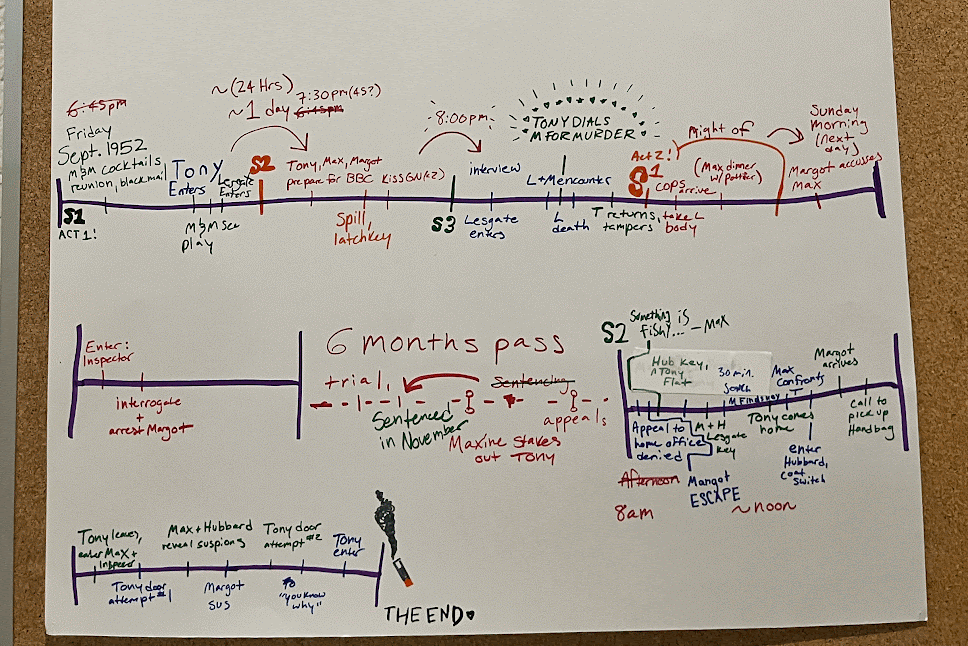 6:45pm
Friday
Sept. 1952
M&M cocktails
reunion, blackmail
S1
ACT 1!
Tony
Enters
Lesgate
Enters
M&M see
play
~(24 Hrs)
~1 day
7:30pm(45?)
6:45pm
S2
Tony, Max, Margot
prepare for BBC Kiss GN(x2)
Spill,
latchkey
8:00pm
S3
interview
Lesgate
enters
TONY DIALS
M FOR MURDER
L+M encounter
L
death
T returns,
tampers
Act 2!
S1
cops
arrive
take L
body
Night of
(Max dinner
w/
Sunday
Morning
(next
day)
Margot accuses
Max
Enter:
Inspector
interrogate
+
arrest Margot
6 months pass
trial,
Sentencing
Sentenced
in November
Maxine stakes
out Tony
appeals
S2
Something is
fishy... -Max
Hub Key,
^Tony
Flat
30 min.
M Finds
Max
confronts
T
Margot
arrives
Appeal to
home office
denied
M + H
Lesgate
key
Tony comes
home
call to
pick up
Handbag
Margot
ESCAPE
enter
Hubbard,
coat
switch
Afternoon
8am
~noon
Tony leaves,
enter Max+
Inspector
Max+Hubbard
reveal suspions
Tony door
attempt #2
Tony
enter
Tony door
attempt #1
Margot
sus
"you know
why"
THE END